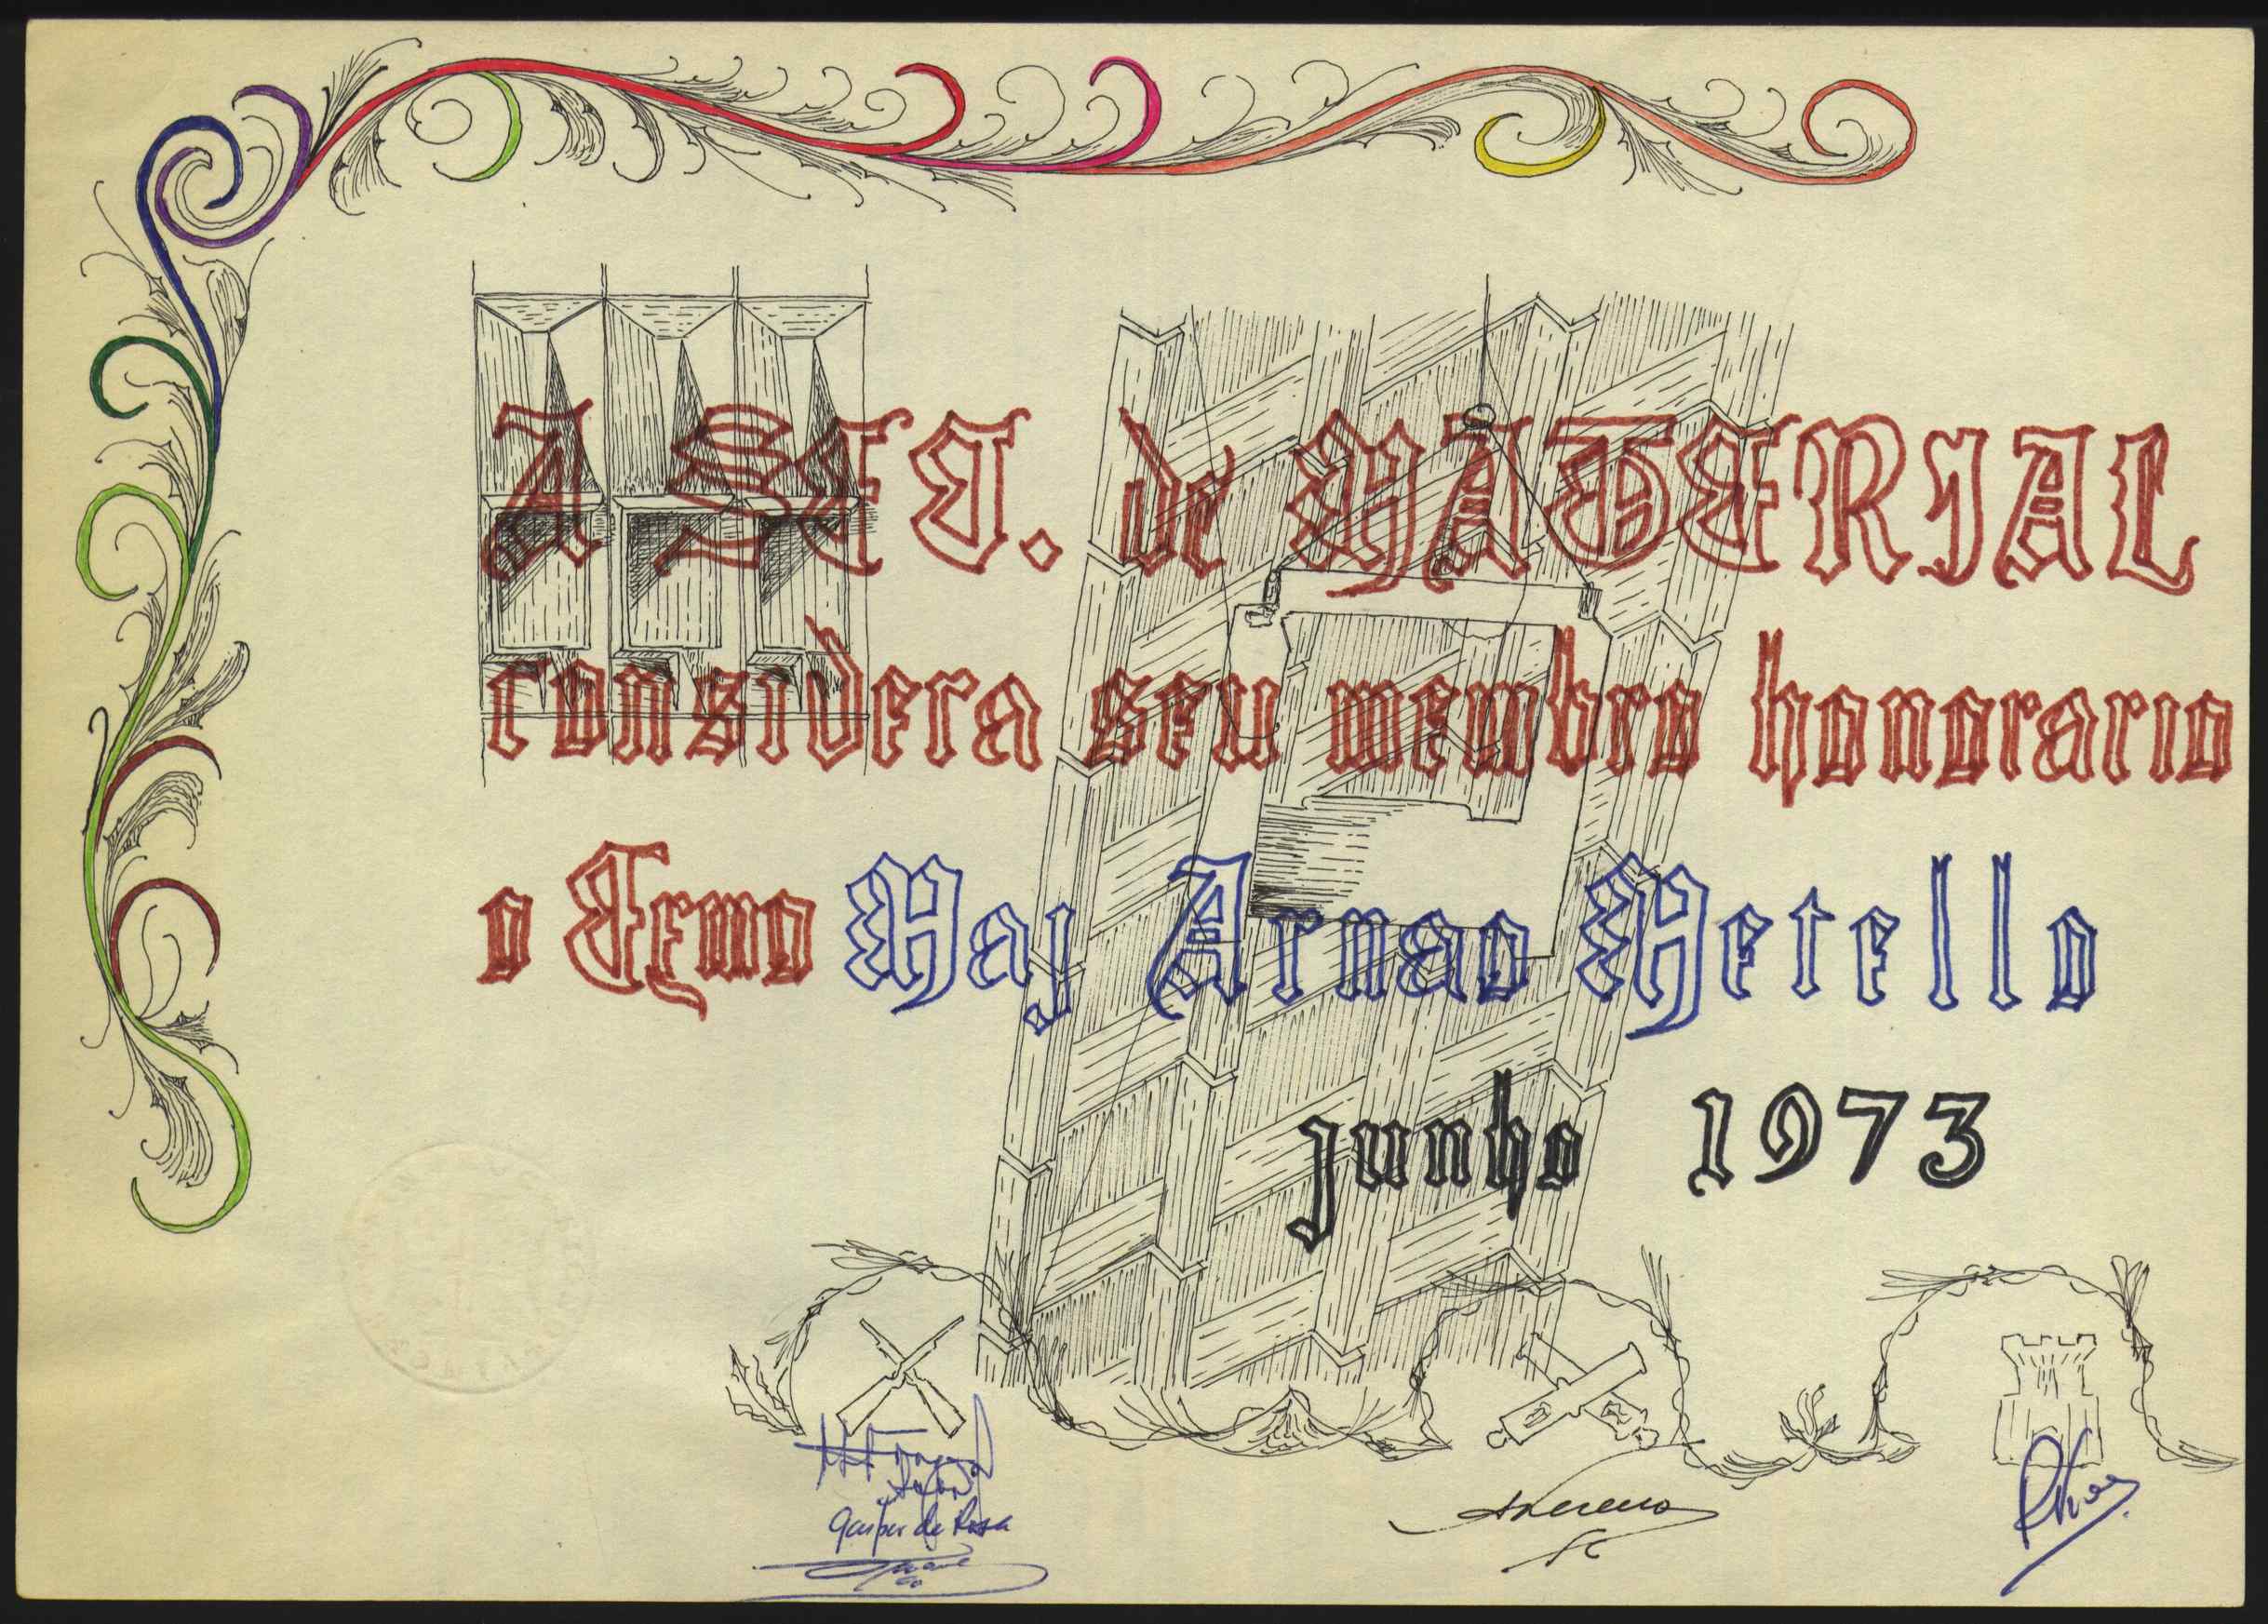 A SEC. de MATERIAL
considera seu membro honorario
o Exmo Maj Arnao Metello
junho 1973
Gaspar da Rosa